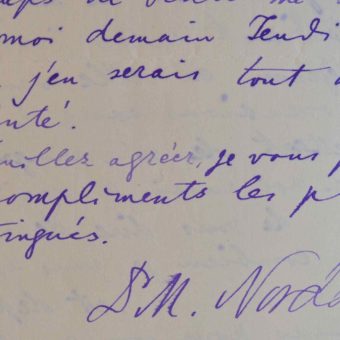 moi demain Jeudi
j'en serais tout
nté.
uillez agréer, je vous p
compliments les p
tingués.
Dr M. Norda